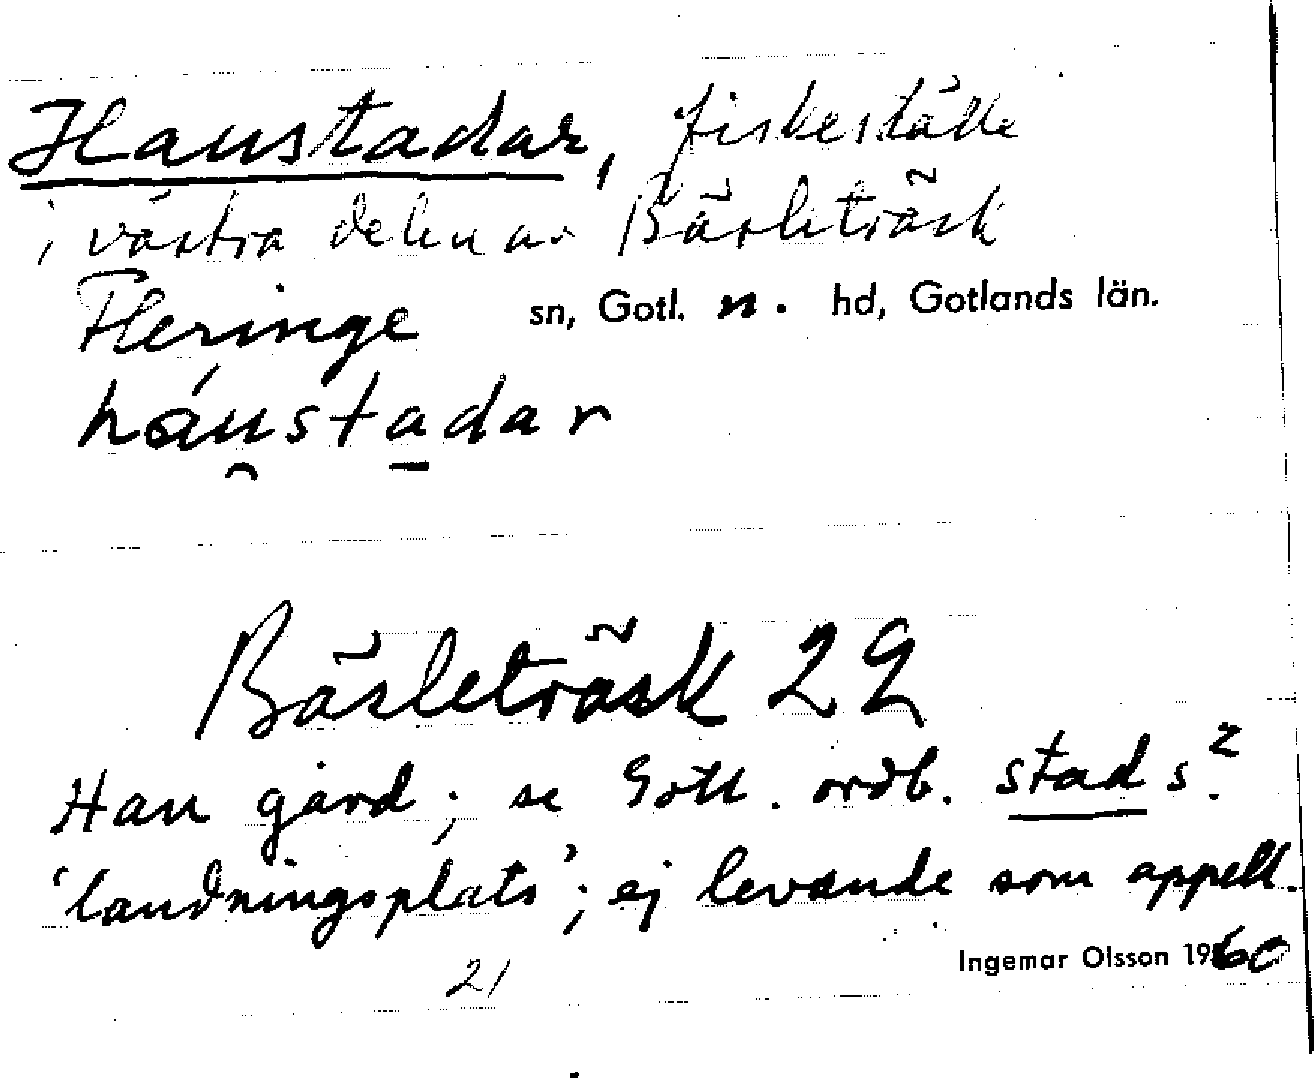 Haustadar, fiskeställe
i västra delen av Bäsleträsk
Fleringe sn, Gotl. n. hd, Gotlands län.
háu̯sta̱dar
Bäsleträsk 22
Hau gård; se Gotl. ordb. stad s.2
'landningsplats'; ej levande som appell.
Ingemar Olsson 1960
21